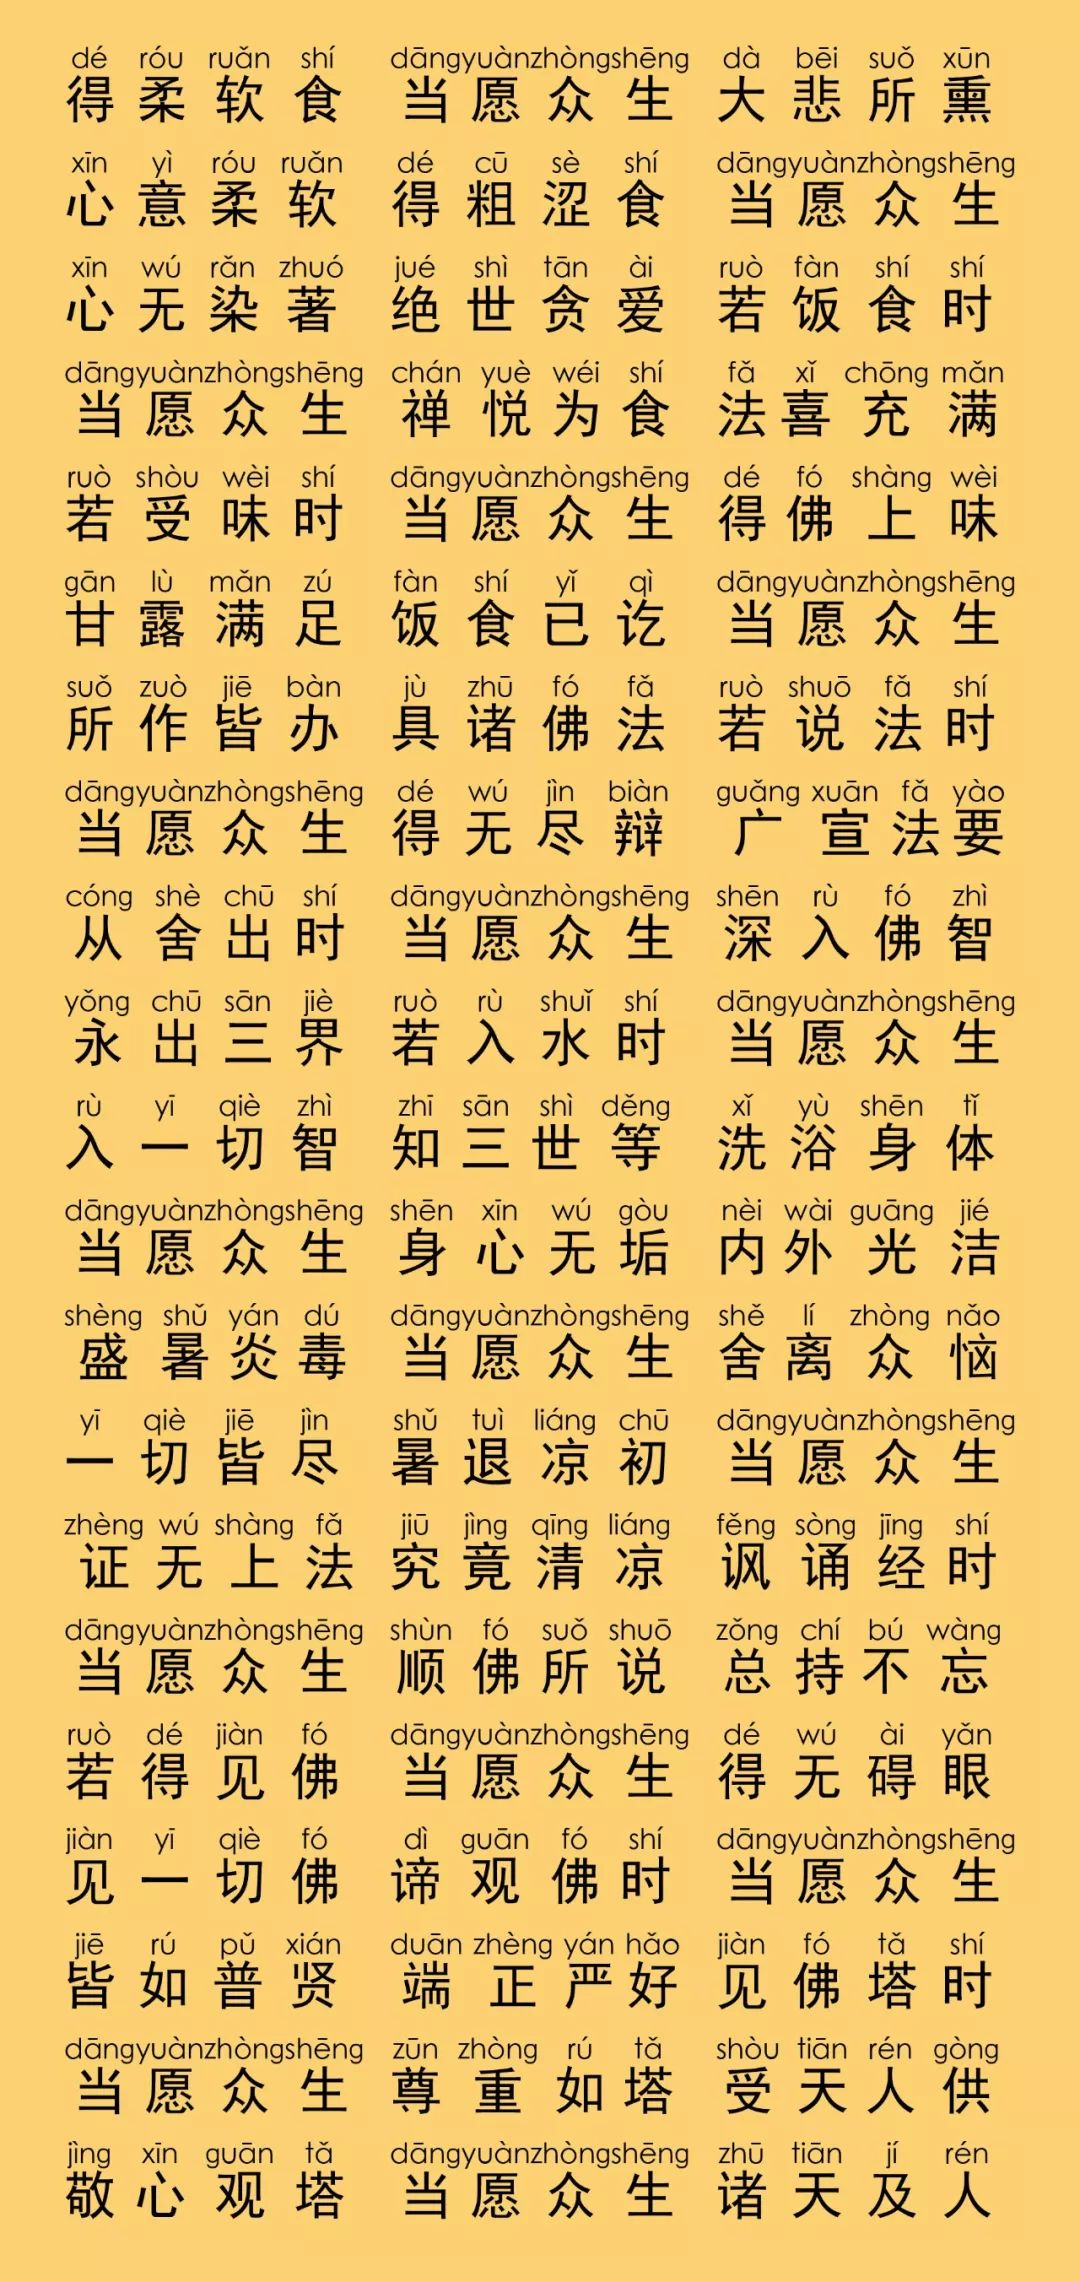 dé róu ruǎn shí dāngyuànzhòngshēng dà bēi suǒ xūn
得柔软食 当愿众生 大悲所熏
xīn yì róu ruǎn dé cū sè shí dāngyuànzhòngshēng
心意柔软 得粗涩食 当愿众生
xīn wú rǎn zhuó jué shì tān ài ruò fàn shí shí
心无染著 绝世贪爱 若饭食时
dāngyuànzhòngshēng chán yuè wéi shí fǎ xǐ chōng mǎn
当愿众生 禅悦为食 法喜充满
ruò shòu wèi shí dāngyuànzhòngshēng dé fó shàng wèi
若受味时 当愿众生 得佛上味
gān lù mǎn zú fàn shí yǐ qì dāngyuànzhòngshēng
甘露满足 饭食已讫 当愿众生
suǒ zuò jiē bàn jù zhū fó fǎ ruò shuō fǎ shí
所作皆办 具诸佛法 若说法时
dāngyuànzhòngshēng dé wú jìn biàn guǎng xuān fǎ yào
当愿众生 得无尽辩 广宣法要
cóng shè chū shí dāngyuànzhòngshēng shēn rù fó zhì
从舍出时 当愿众生 深入佛智
yǒng chū sān jiè ruò rù shuǐ shí dāngyuànzhòngshēng
永出三界 若入水时 当愿众生
rù yī qiè zhì zhī sān shì děng xǐ yù shēn tǐ
入一切智 知三世等 洗浴身体
dāngyuànzhòngshēng shēn xīn wú gòu nèi wài guāng jié
当愿众生 身心无垢 内外光洁
shèng shǔ yán dú dāngyuànzhòngshēng shě lí zhòng nǎo
盛暑炎毒 当愿众生 舍离众恼
yī qiè jiē jìn shǔ tuì liáng chū dāngyuànzhòngshēng
一切皆尽 暑退凉初 当愿众生
zhèng wú shàng fǎ jiū jìng qīng liáng fěng sòng jīng shí
证无上法 究竟清凉 讽诵经时
dāngyuànzhòngshēng shùn fó suǒ shuō zǒng chí bú wàng
当愿众生 顺佛所说 总持不忘
ruò dé jiàn fó dāngyuànzhòngshēng dé wú ài yǎn
若得见佛 当愿众生 得无碍眼
jiàn yī qiè fó dì guān fó shí dāngyuànzhòngshēng
见一切佛 谛观佛时 当愿众生
jiē rú pǔ xián duān zhèng yán hǎo jiàn fó tǎ shí
皆如普贤 端正严好 见佛塔时
dāngyuànzhòngshēng zūn zhòng rú tǎ shòu tiān rén gòng
当愿众生 尊重如塔 受天人供
jìng xīn guān tǎ dāngyuànzhòngshēng zhū tiān jí rén
敬心观塔 当愿众生 诸天及人